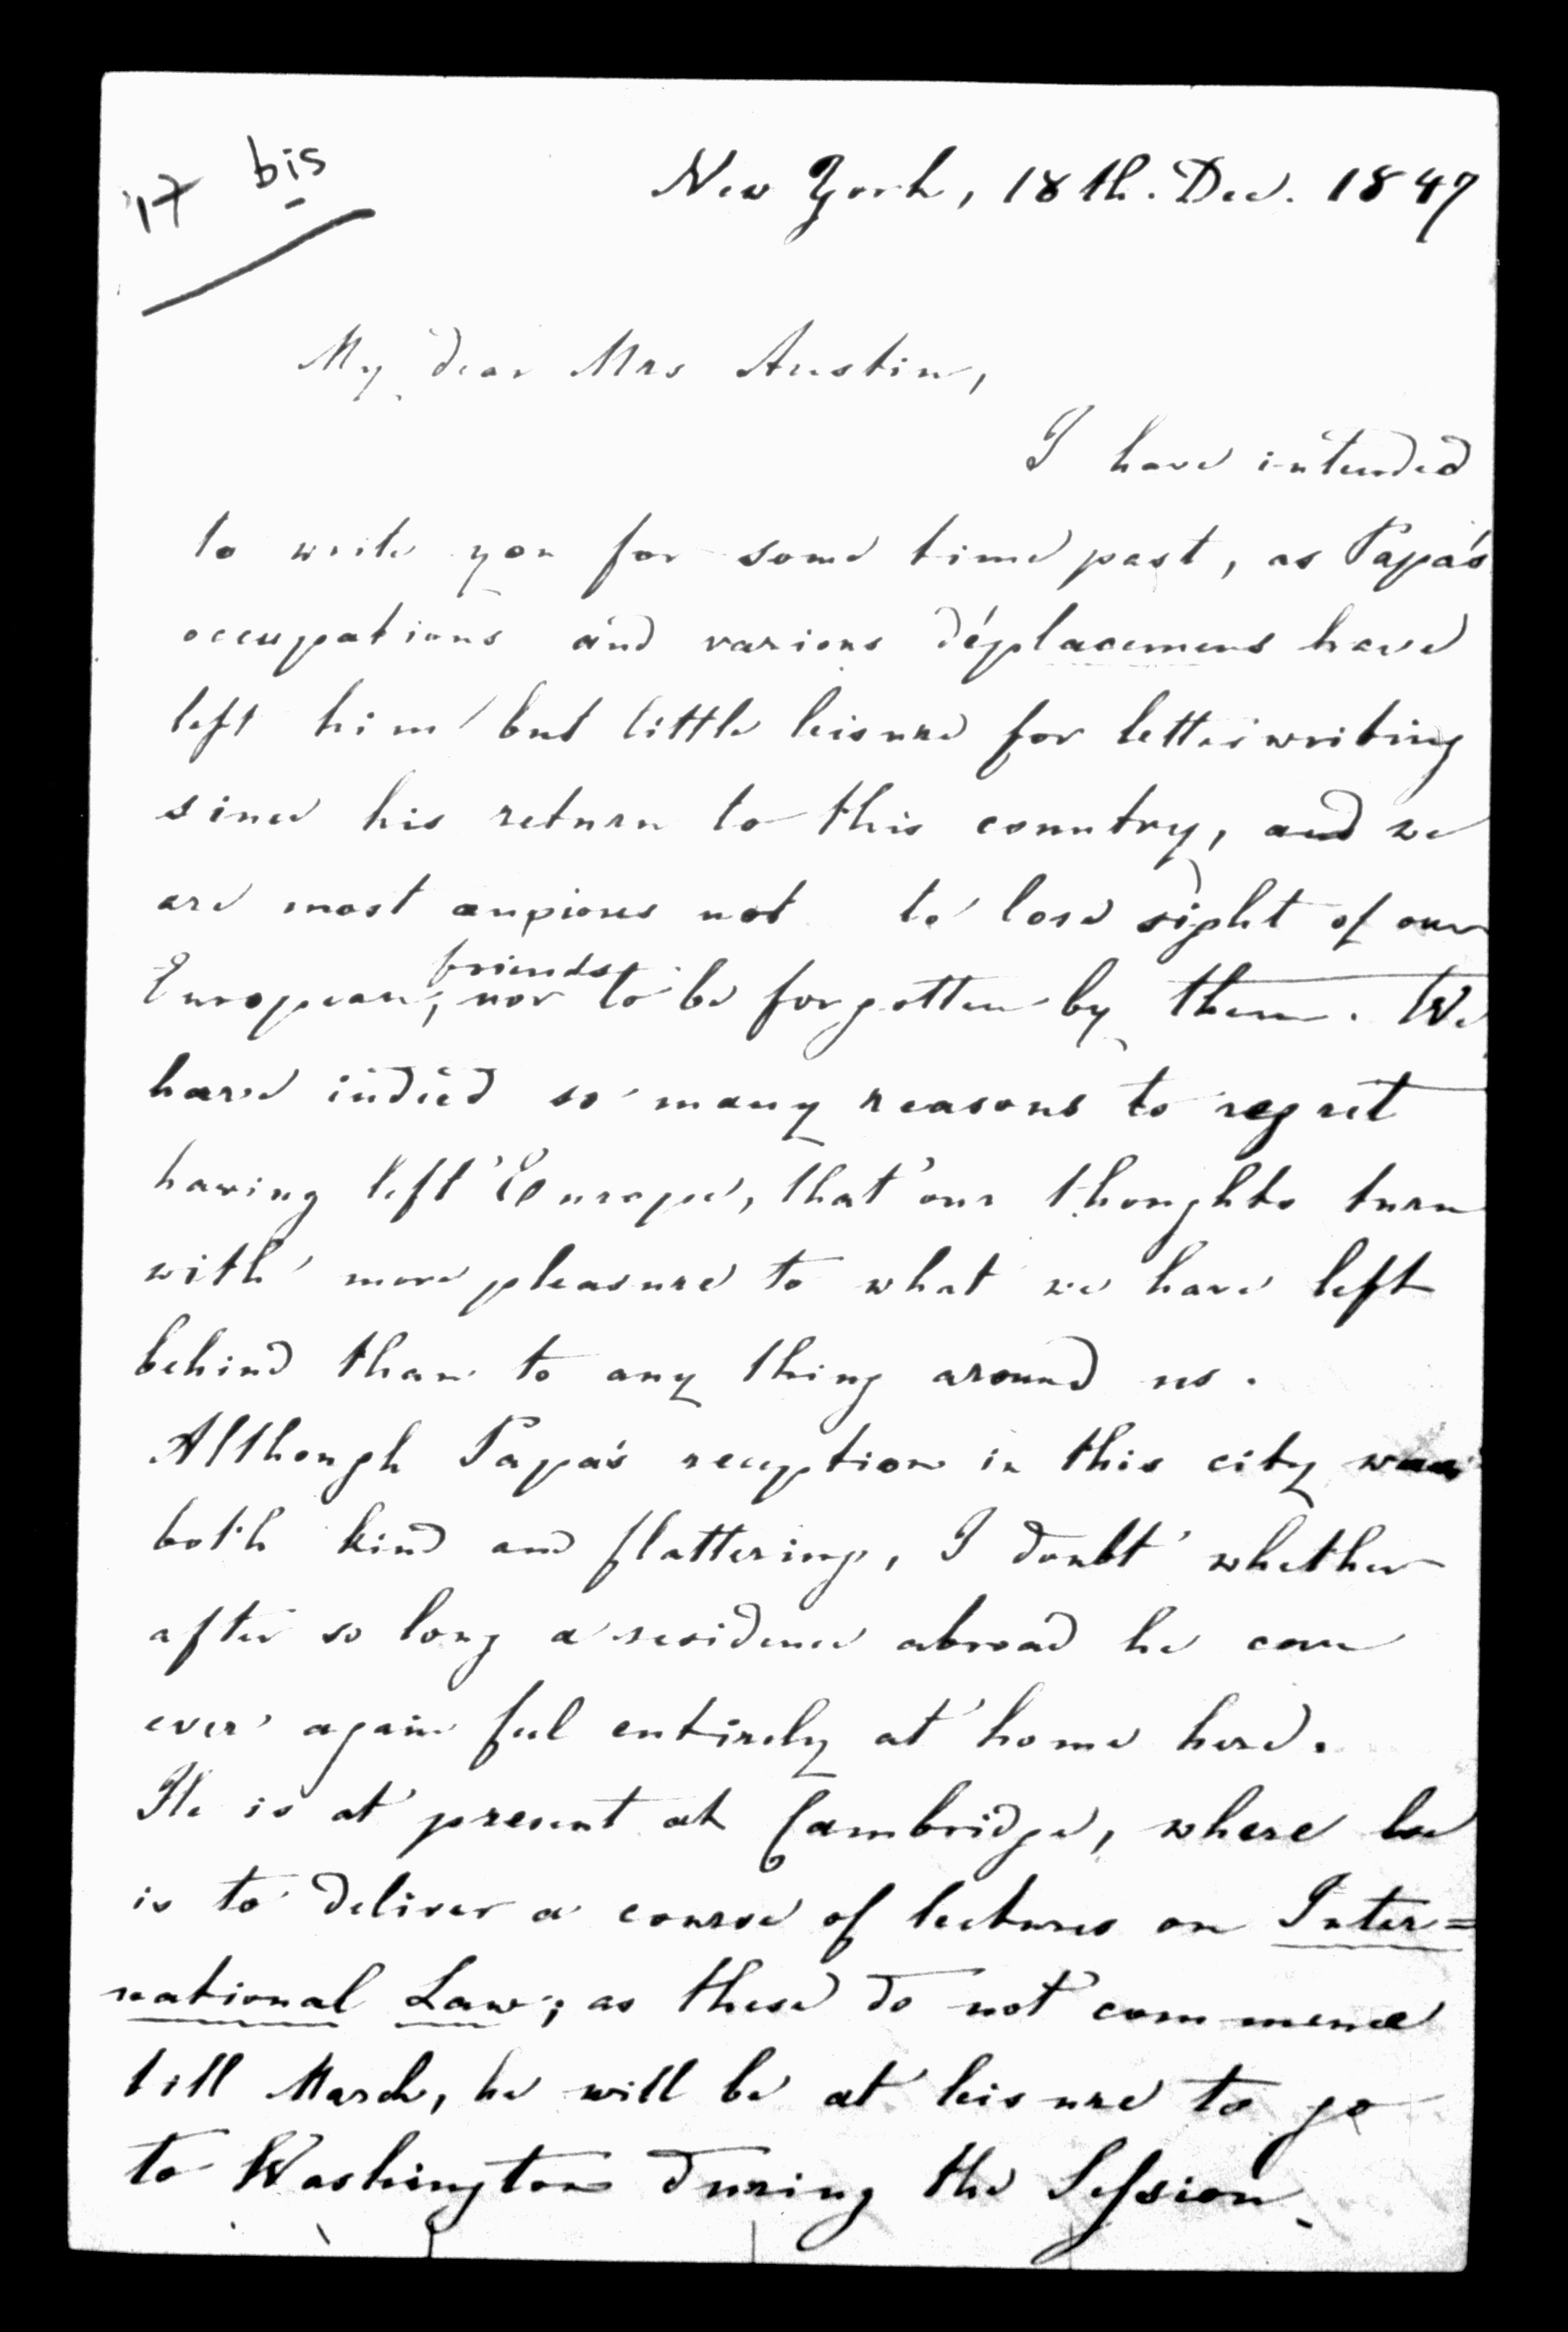 17 bis
New York, 18th. Dec. 1847
My dear Mrs Austin,
I have intended
to write you for some time past, as Papa's
occupations and various déplacemens have
left him but little leisure for letter writing
since his return to this country, and we
are most anxious not to lose sight of our
European friends, nor to be forgotten by them. We
have indeed so many reasons to regret
having left Europe, that our thoughts turn
with more pleasure to what we have left
behind than to any thing around us.
Although Papa's reception in this city was
both kind and flattering, I doubt whether
after so long a residence abroad he can
ever again feel entirely at home here.
He is at present at Cambridge, where he
is to deliver a course of lectures on Inter=
national Law; as these do not commence
till March, he will be at leisure to go
to Washington during the Session.